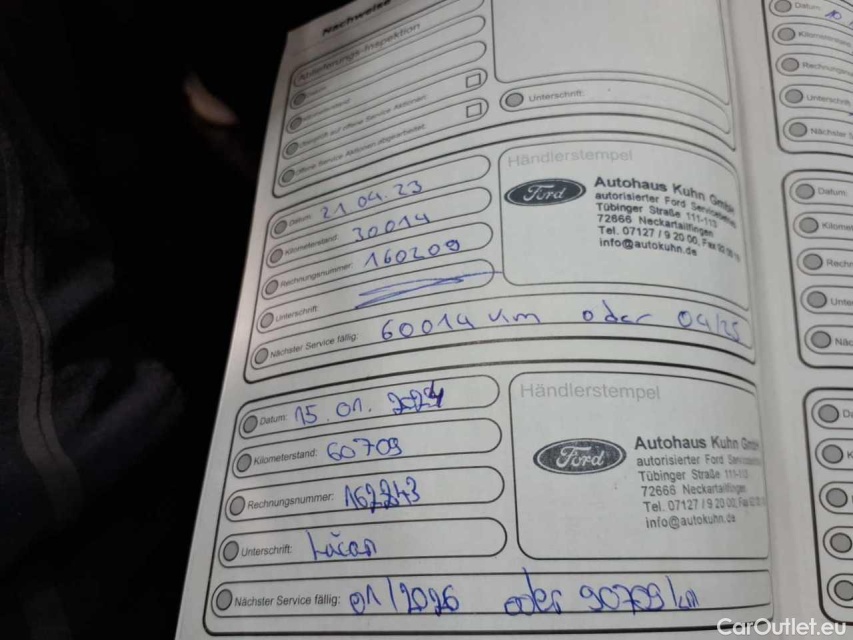 Nachweise
Ablieferungs-Inspektion
offene Service Aktionen:
Offene Service Aktionen abgearbeitet:
Unterschrift:
Händlerstempel
Datum: 21.04.23
Kilometerstand: 30014
Rechnungsnummer: 160209
Unterschrift:
Nächster Service fällig: 60014 km oder 04/25
Ford
Autohaus Kuhn GmbH
autorisierter Ford
Tübinger Straße 111-113
72666 Neckartailfingen
Tel. 07127 / 9 20 00, Fax
info@autokuhn.de
Händlerstempel
Datum: 15.01.2024
Kilometerstand: 60709
Rechnungsnummer: 162243
Unterschrift:
Nächster Service fällig: 01/2026 oder 90709 km
Ford
Autohaus Kuhn GmbH
autorisierter Ford
Tübinger Straße 111-113
72666 Neckartailfingen
Tel. 07127 / 9 20 00, Fax
info@autokuhn.de
Datum:
Unterschrift
Nächster
Datum:
CarOutlet.eu